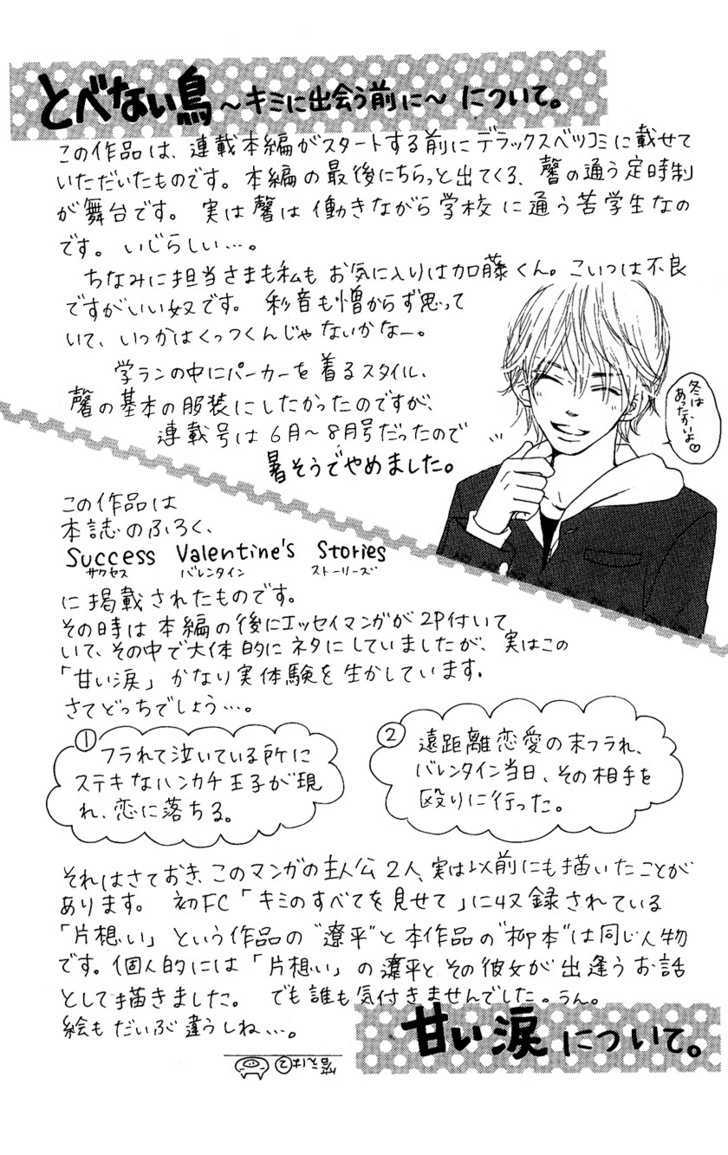 とべない鳥 ～キミに出会う前に～ について。
この作品は、連載本編がスタートする前にデラックスベツコミに載せて
いただいたものです。本編の最後にちらっと出てくる、馨の通う定時制
が舞台です。実は馨は働きながら学校に通う苦学生なの
です。いじらしい…。
ちなみに担当さまも私もお気に入りは加藤くん。こいつは不良
ですがいい奴です。彩音も憎からず思って
いて、いつかはくっつくんじゃないかなー。
学ランの中にパーカーを着るスタイル、
馨の基本の服装にしたかったのですが、
連載号は6月～8月号だったので
暑そうでやめました。
冬は
あったかいよ♡
この作品は
本誌のふろく、
Success Valentine's Stories
サクセス バレンタイン ストーリーズ
に掲載されたものです。
その時は本編の後にエッセイマンガが2P付いて
いて、その中で大体的にネタにしていましたが、実はこの
「甘い涙」かなり実体験を生かしています。
さてどっちでしょう…。
①
フラれて泣いている所に
ステキなハンカチ王子が現
れ、恋に落ちる。
②
遠距離恋愛の末フラれ、
バレンタイン当日、その相手を
殴りに行った。
それはさておき、このマンガの主人公2人、実は以前にも描いたことが
あります。初FC「キミのすべてを見せて」に収録されている
「片想い」という作品の"遼平"と本作品の"柳本"は同じ人物
です。個人的には「片想い」の遼平とその彼女が出逢うお話
として描きました。でも誰も気付きませんでした。うん。
絵もだいぶ違うしね…。
答えは②
甘い涙 について。